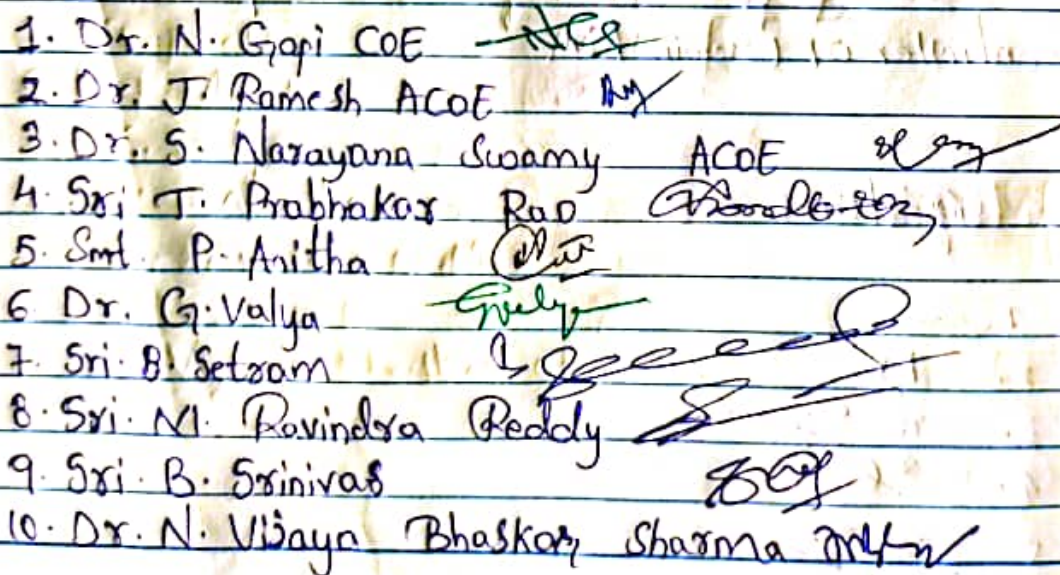 1. Dr. N. Gopi COE
2. Dr. J. Ramesh ACOE
3. Dr. S. Narayana Swamy ACOE
4. Sri T. Prabhakar Rao
5. Smt. P. Anitha
6 Dr. G. Valya
7. Sri. B. Setram
8. Sri. M. Ravindra Reddy
9. Sri. B. Srinivas
10. Dr. N. Vijaya Bhaskar Sharma